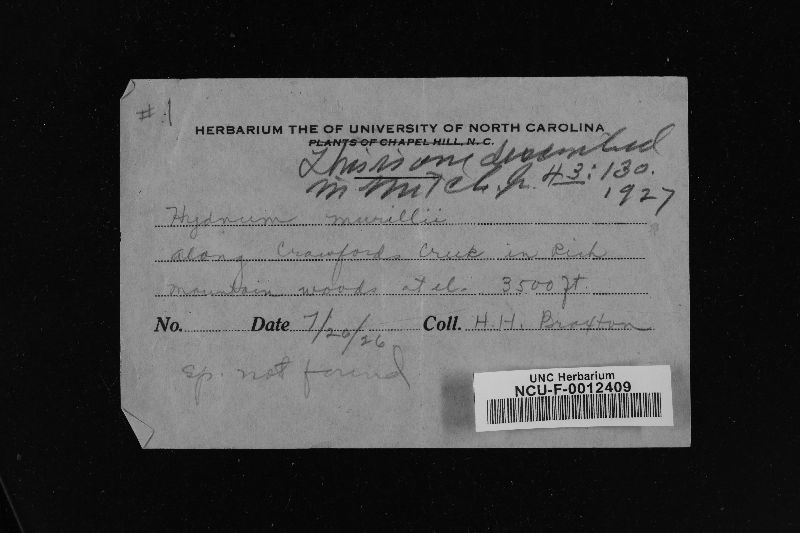 # 1
HERBARIUM THE OF UNIVERSITY OF NORTH CAROLINA
PLANTS OF CHAPEL HILL, N. C.
This is one described
in Mitch. J. 43: 130.
1927
Hydnum murillii
along Crawfords Creek in Rich
mountain woods at el. 3500 ft
No. Date 7/20/26 Coll. H.H. Braxton
Sp. not found
UNC Herbarium
NCU-F-0012409